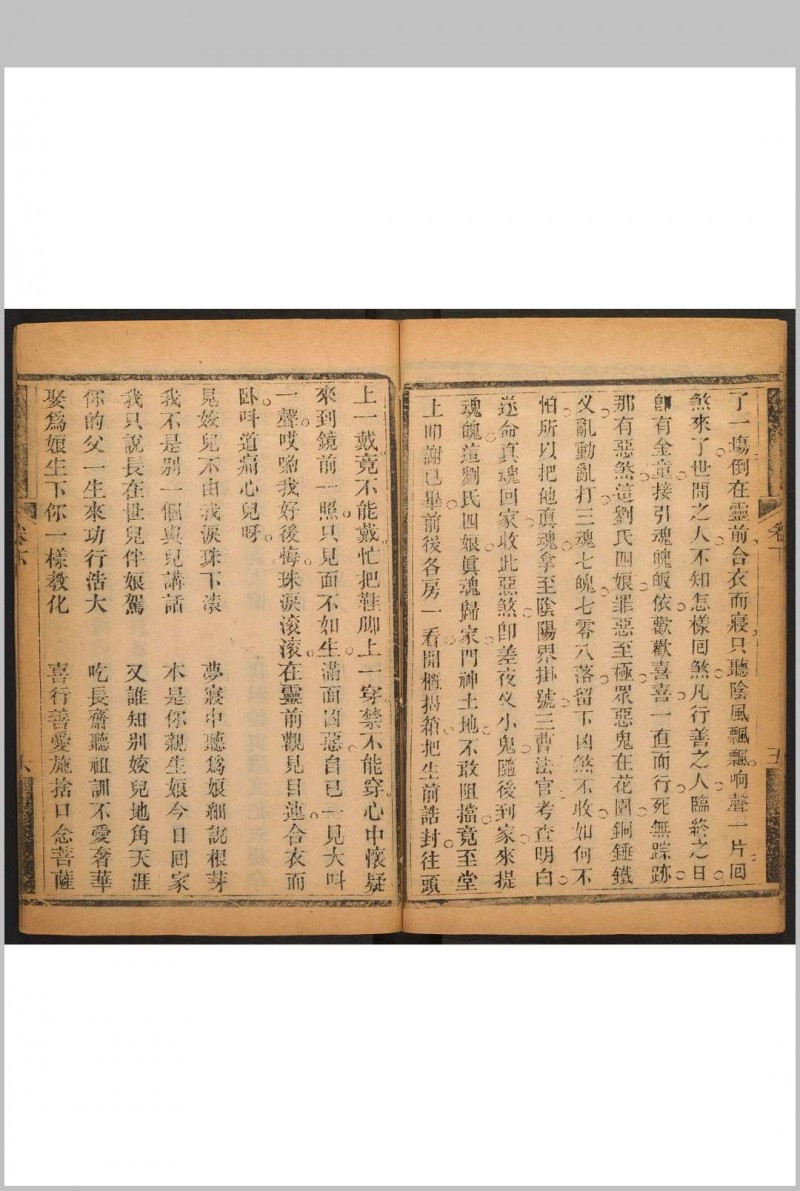 了一塲倒在靈前合衣而寢只聽陰風飄飄响聲一片回
煞來了世間之人不知怎樣回煞凡行善之人臨終之日
卽有金童接引魂魄皈依歡歡喜喜一直而行死無踪跡
那有惡煞這劉氏四娘罪惡至極眾惡鬼在花園銅錘鐵
义亂動亂打三魂七魄七零八落留下凶煞不收如何不
怕所以把他真魂拿至陰陽界掛號三曹法官考查明白
送命真魂回家收此惡煞卽差夜义小鬼隨後到家來提
魂魄這劉氏四娘真魂歸家門神土地不敢阻擋竟至堂
上叩謝已畢前後各房一看開櫃揭箱把生前誥封往頭
卷下
上一戴竟不能戴忙把鞋脚上一穿禁不能穿心中懷疑
來到鏡前一照只見面不如生滿面凶惡自已一見大呌
一聲哎喲我好後悔珠淚滚滚在靈前觀見目連合衣而
卧呌道痛心兒呀
見姣兒不由我淚珠下滚 夢寢中聽爲娘細說根芽
我不是別一個與兒講話 本是你親生娘今日回家
我只說長在世兒伴娘駕 又誰知別姣兒地角天涯
你的父一生來功行浩大 吃長齋聽祖訓不愛奢華
娶爲娘生下你一樣敎化 喜行善愛施捨口念菩薩
卷下